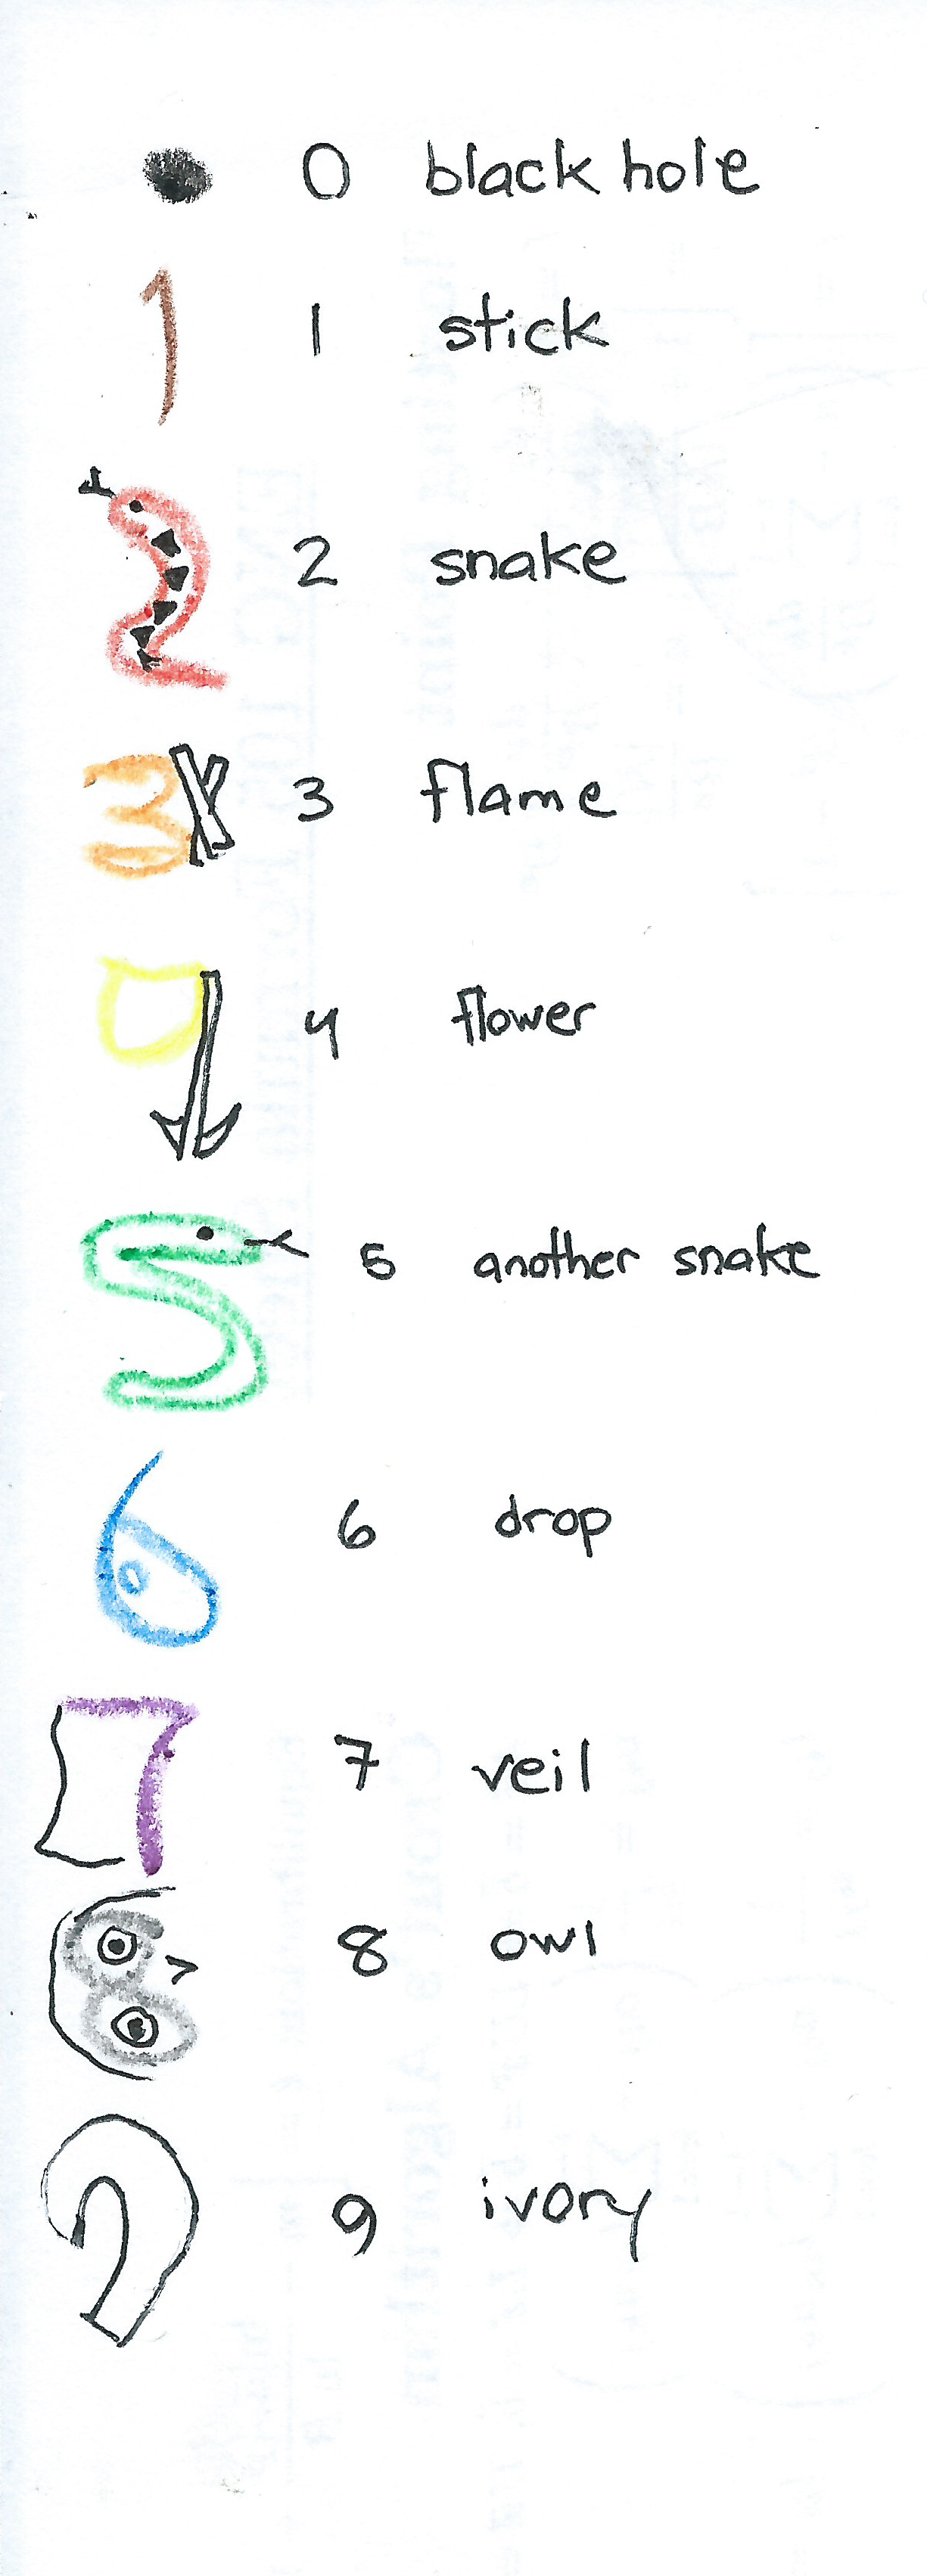 0 black hole
1 stick
2 snake
3 flame
4 flower
5 another snake
6 drop
7 veil
8 owl
9 ivory